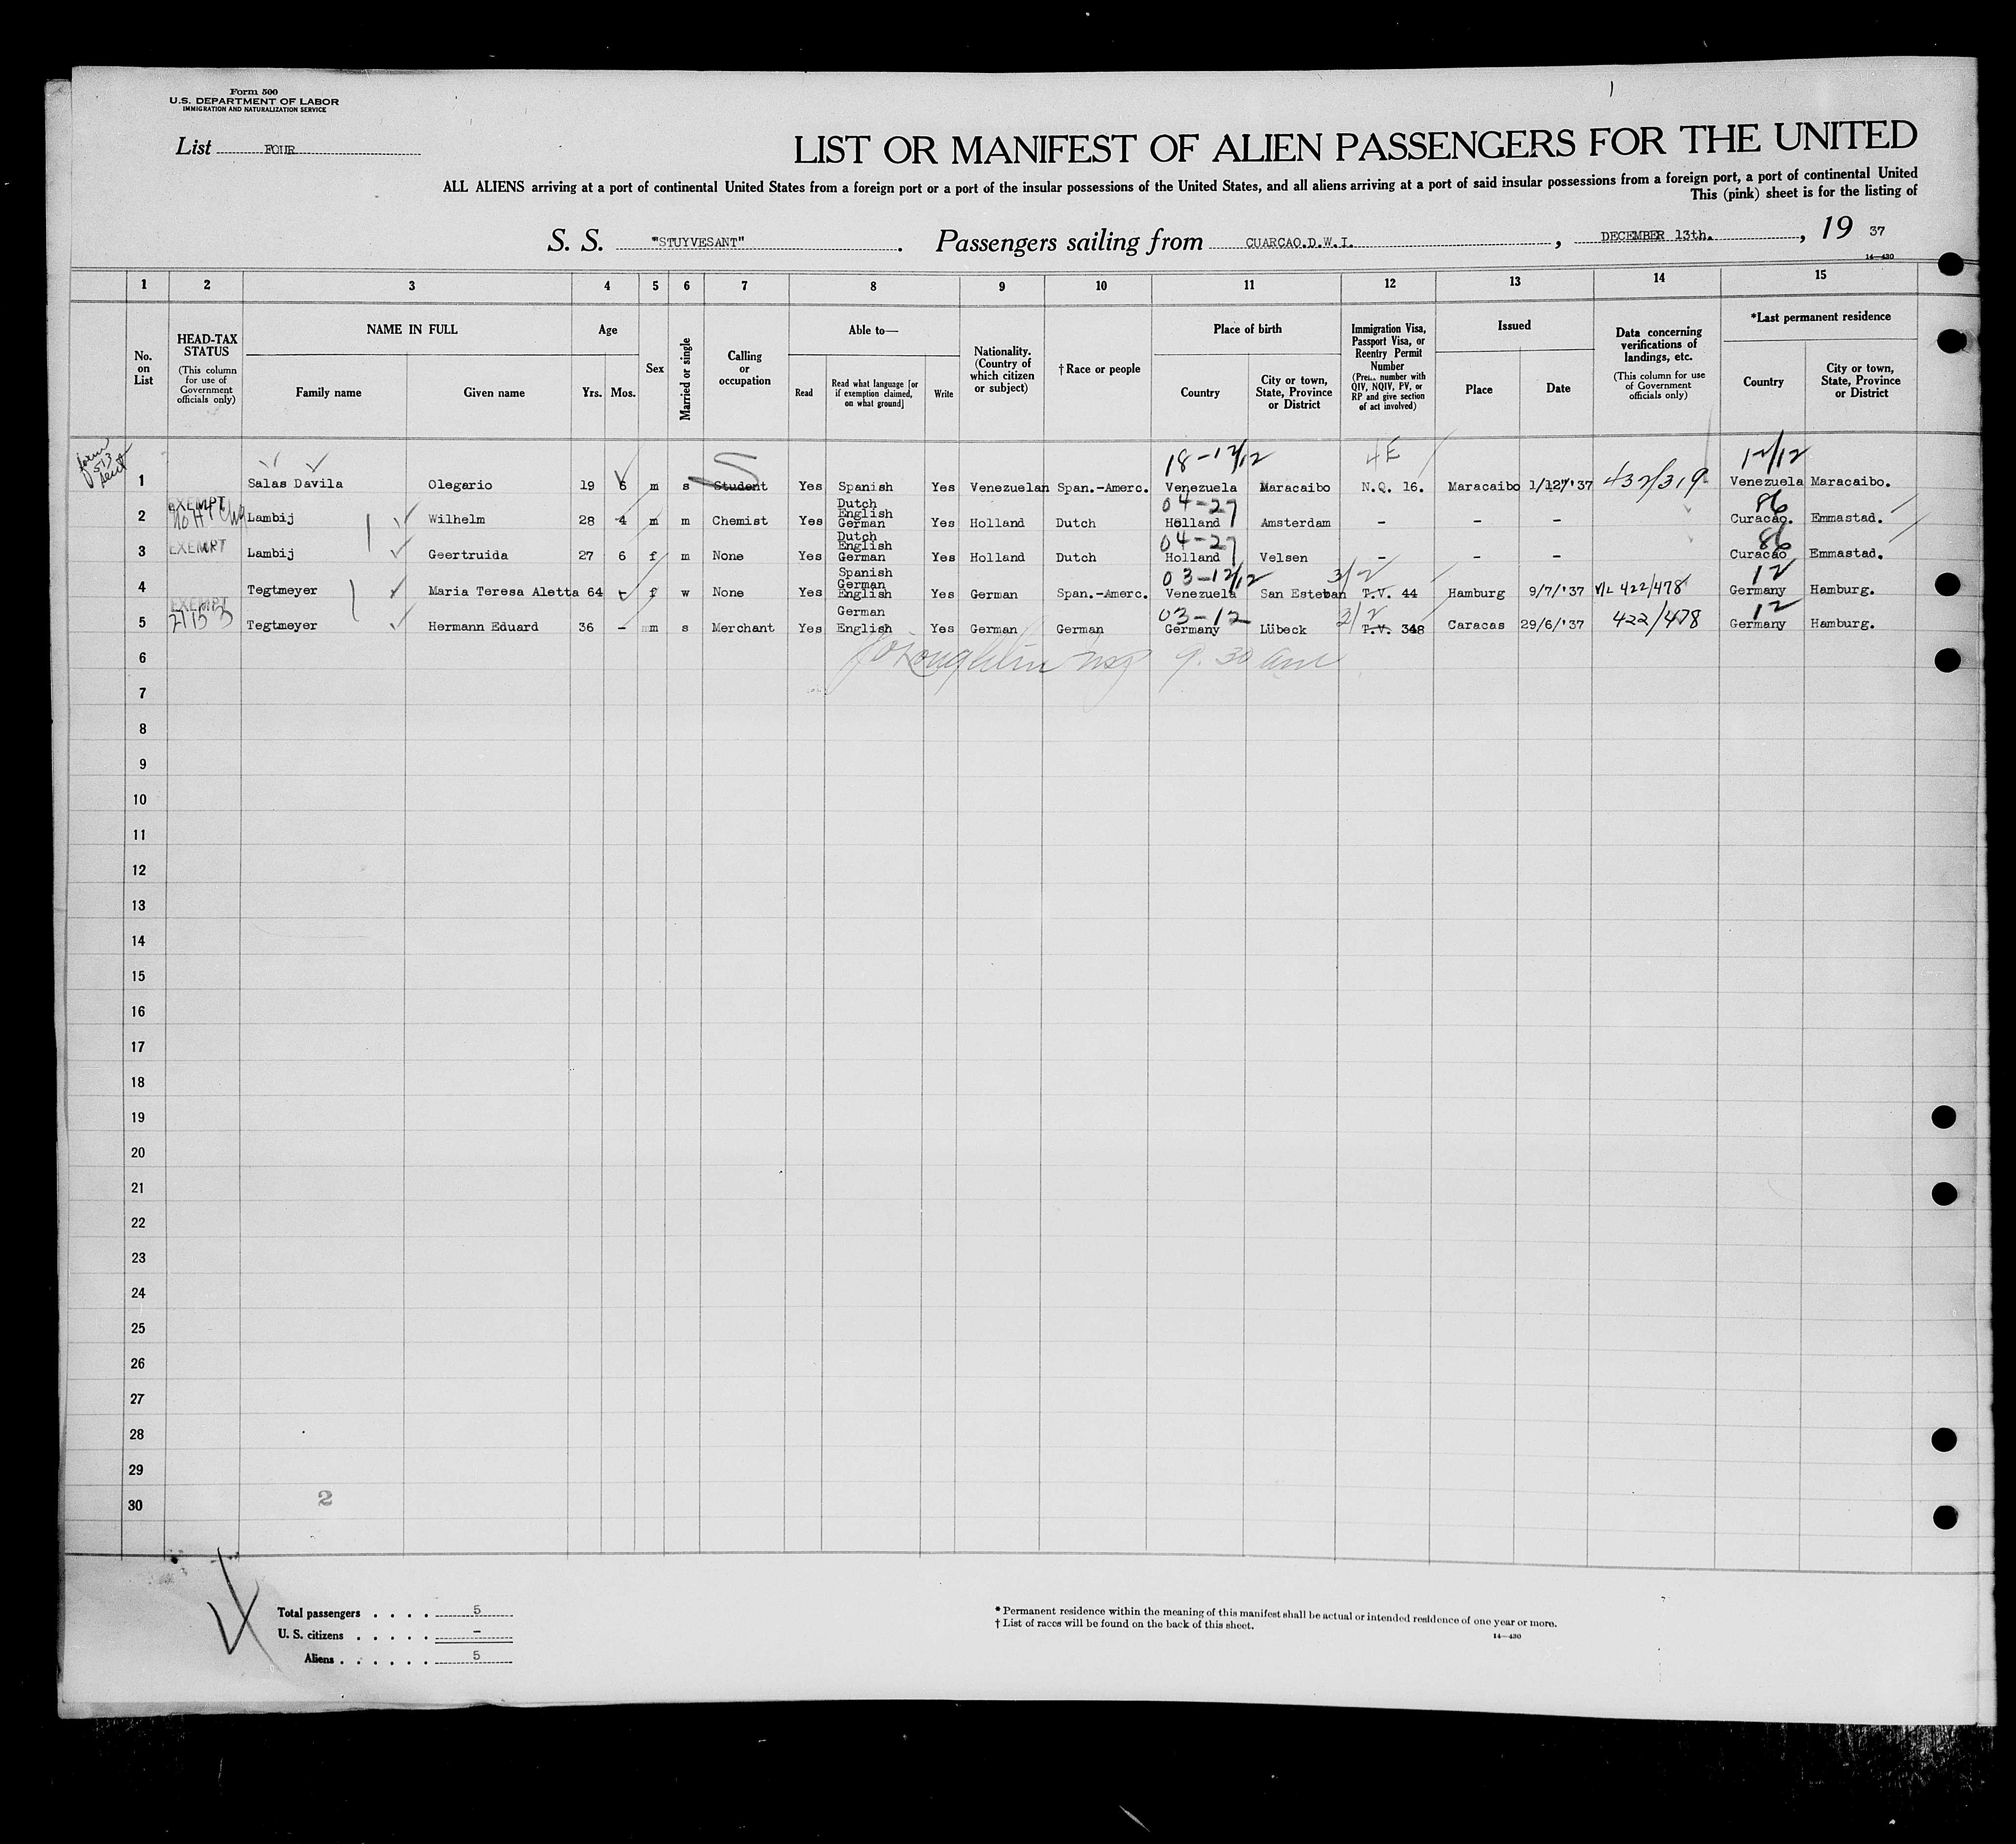 Form 500
U.S. DEPARTMENT OF LABOR
IMMIGRATION AND NATURALIZATION SERVICE
List FOUR
LIST OR MANIFEST OF ALIEN PASSENGERS FOR THE UNITED
ALL ALIENS arriving at a port of continental United States from a foreign port or a port of the insular possessions of the United States, and all aliens arriving at a port of said insular possessions from a foreign port, a port of continental United
This (pink) sheet is for the listing of
S. S. "STUYVESANT". Passengers sailing from CUARCAO.D.W.I., DECEMBER 13th., 19 37
14—430
1 2 3 4 5 6 7 8 9 10 11 12 13 14 15
No. on List
HEAD-TAX STATUS
(This column for use of Government officials only)
NAME IN FULL
Family name
Given name
Age
Yrs. Mos.
Sex
Married or single
Calling or occupation
Able to—
Read
Read what language [or if exemption claimed, on what ground]
Write
Nationality. (Country of which citizen or subject)
†Race or people
Place of birth
Country
City or town, State, Province or District
Immigration Visa, Passport Visa, or Reentry Permit Number
number with QIV, NQIV, PV, or RP and give section of act involved)
Issued
Place
Date
Data concerning verifications of landings, etc.
(This column for use of Government officials only)
*Last permanent residence
Country
City or town, State, Province or District
form 513 sent
18-12/12 4E 12/12
1 Salas Davila Olegario 19 6 m s Student Yes Spanish Yes Venezuelan Span.-Amerc. Venezuela Maracaibo N.Q. 16. Maracaibo 1/12/'37 432/319 Venezuela Maracaibo.
EXEMPT Dutch 04-27 86
2 Lambij Wilhelm 28 4 m m Chemist Yes English German Yes Holland Dutch Holland Amsterdam - - - Curacao. Emmastad.
EXEMPT Dutch 04-27 86
3 Lambij Geertruida 27 6 f m None Yes English German Yes Holland Dutch Holland Velsen - - - Curacao Emmastad.
Spanish 03-12/12 3/2 12
4 Tegtmeyer Maria Teresa Aletta 64 - f w None Yes German English Yes German Span.-Amerc. Venezuela San Esteban P.V. 44 Hamburg 9/7/'37 422/478 Germany Hamburg.
EXEMPT German 03-12 3/2 12
5 Tegtmeyer Hermann Eduard 36 - m s Merchant Yes English Yes German German Germany Lübeck P.V. 348 Caracas 29/6/'37 422/478 Germany Hamburg.
6 9.30 am
7
8
9
10
11
12
13
14
15
16
17
18
19
20
21
22
23
24
25
26
27
28
29
30
2
Total passengers . . . . 5
U. S. citizens . . . . . -
Aliens . . . . . . 5
* Permanent residence within the meaning of this manifest shall be actual or intended residence of one year or more.
† List of races will be found on the back of this sheet.
14—430